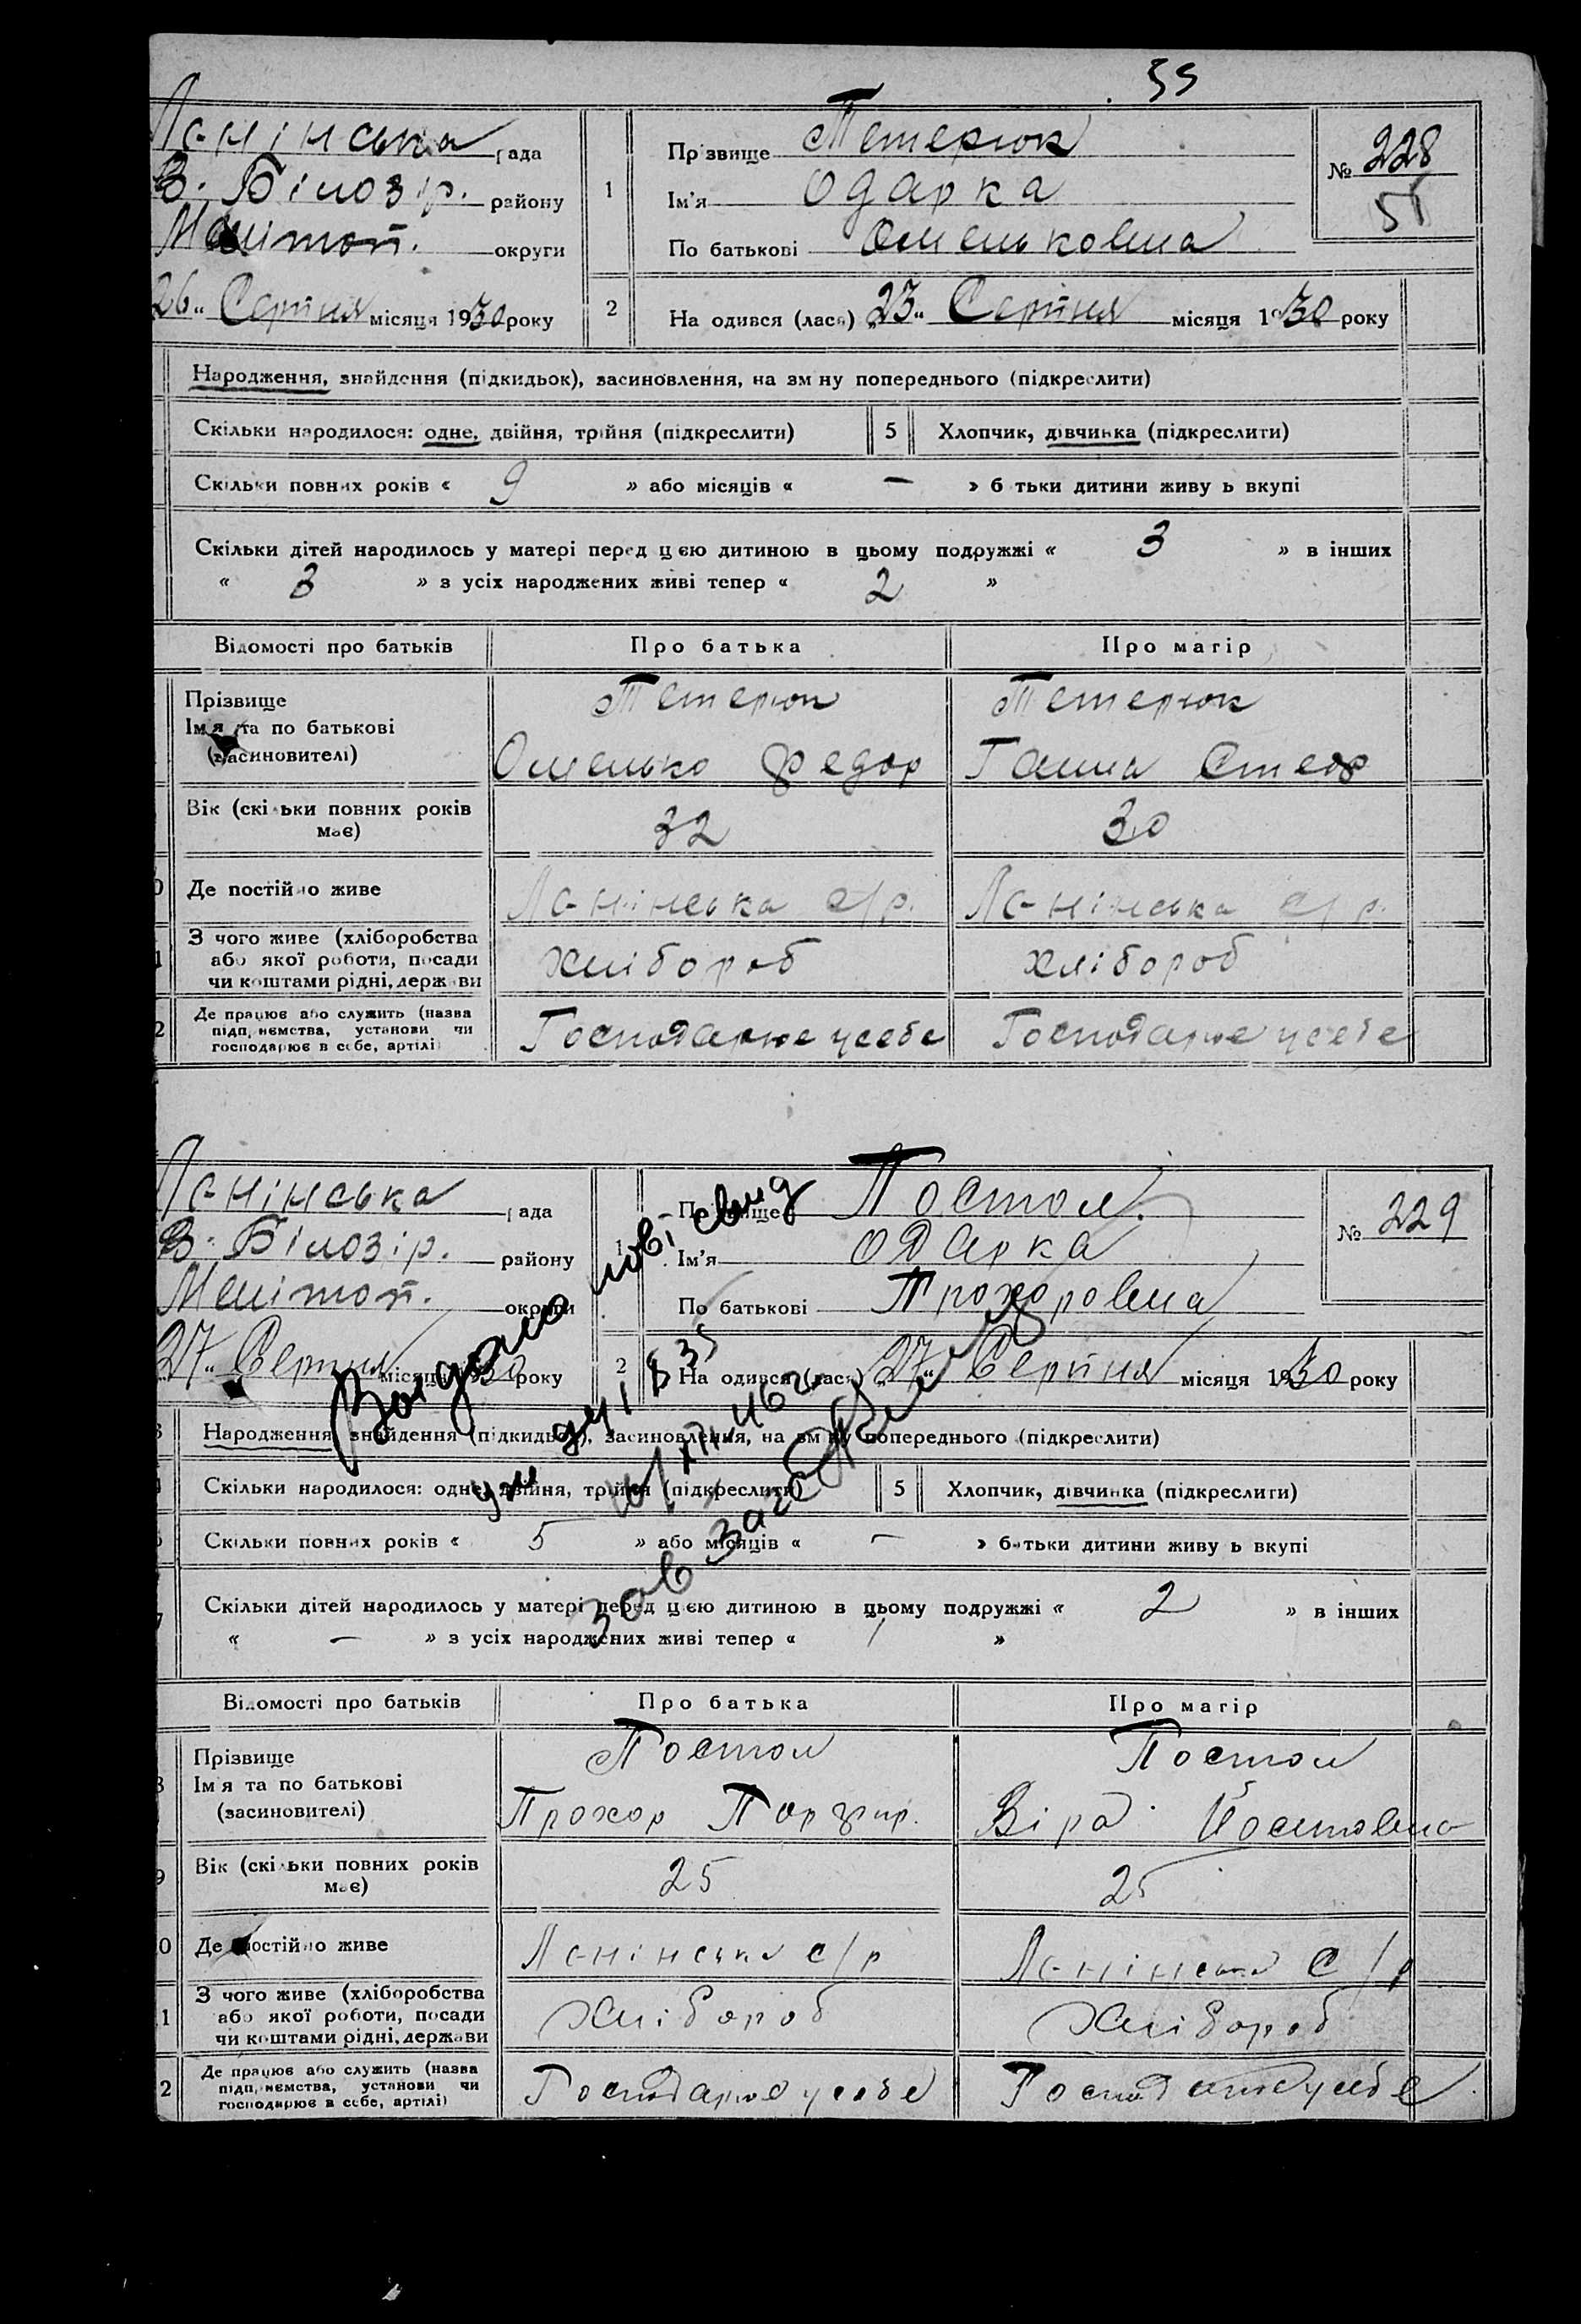 55
Ленінська рада
В. Білозір. району
Мелітоп. округи
26 „ Серпня місяця 1930 року
1
Прізвище Тетерюк
Ім'я Одарка
По батькові Омельковна
№ 228
51
2
На одився (лася) „23“ Серпня місяця 1930 року
Народження, знайдення (підкидьок), засиновлення, на зм ну попереднього (підкреслити)
Скільки народилося: одне, двійня, трійня (підкреслити)
5
Хлопчик, дівчинка (підкреслити)
Скільки повних років « 9 » або місяців « — » б тьки дитини живу ь вкупі
Скільки дітей народилось у матері перед цією дитиною в цьому подружжі « 3 » в інших
« 3 » з усіх народжених живі тепер « 2 »
Відомості про батьків
Про батька
Про матір
Прізвище
Ім'я та по батькові
(засиновителі)
Тетерюк
Омелько Федор
Тетерюк
Ганна Стеф
Вік (скільки повних років
має)
32
30
0 Де постійно живе
Ленінська с/р.
Ленінська с/р.
З чого живе (хліборобства
або якої роботи, посади
чи коштами рідні, держави
хлібороб
хлібороб
2
Де працює або служить (назва
підприємства, установи чи
господарює в себе, артілі)
Господарює у себе
Господарює у себе
Ленінська рада
В. Білозір. району
Мелітоп. округи
27 „ Серпня місяця 1930 року
1
Прізвище Постол
Ім'я Одарка
По батькові Прохоровна
№ 229
2
На одився (лася) „27“ Серпня місяця 1930 року
Видано нові свид
зав загс
3 Народження, знайдення (підкидьок), засиновлення, на зм ну попереднього (підкреслити)
Скільки народилося: одне, двійня, трійня (підкреслити)
5
Хлопчик, дівчинка (підкреслити)
Скільки повних років « 5 » або місяців « — » батьки дитини живу ь вкупі
7 Скільки дітей народилось у матері перед цією дитиною в цьому подружжі « 2 » в інших
« — » з усіх народжених живі тепер « 1 »
Відомості про батьків
Про батька
Про матір
8
Прізвище
Ім'я та по батькові
(засиновителі)
Постол
Прохор Порфир.
Постол
Віра
9
Вік (скільки повних років
має)
25
25
0 Де постійно живе
Ленінська с/р
Ленінська с/р
1
З чого живе (хліборобства
або якої роботи, посади
чи коштами рідні, держави
Хлібороб
Хлібороб
2
Де працює або служить (назва
підприємства, установи чи
господарює в себе, артілі)
Господарює у себе
Господарює у себе